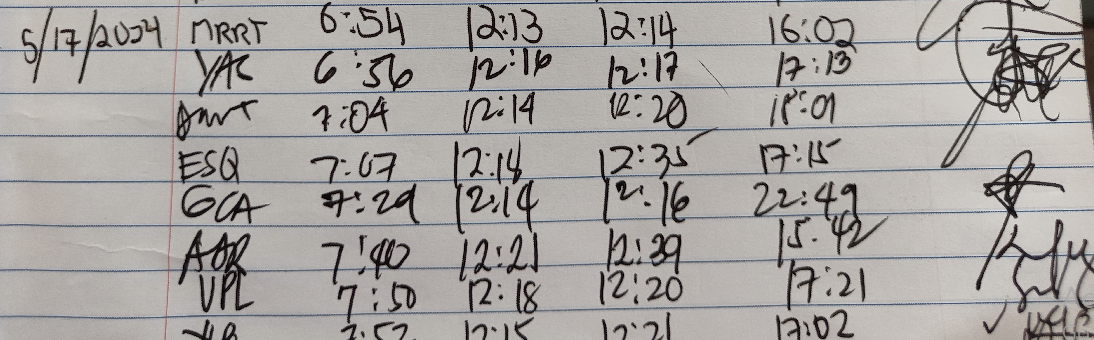 5/17/2024 MRRT 6:54 12:13 12:14 16:02
YAC 6:56 12:16 12:17 17:13
7:04 12:14 12:20 18:01
ESQ 7:07 12:18 12:35 17:15
GCA 7:29 12:14 12:16 22:49
AOR 7:40 12:21 12:39 15:42
VPL 7:50 12:18 12:20 17:21
7:52 12:15 12:21 17:02